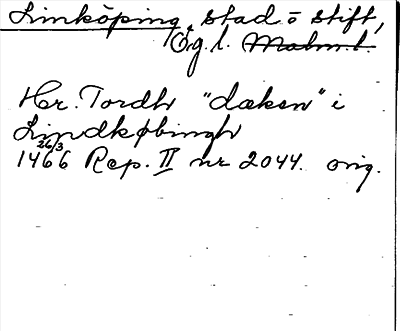 Linköping, stad o stift,
Ög. l. Malm l.
Hr. Tordh "dækn" i
Lindkøbingh
26/3
1466 Rep. II nr 2044. orig.